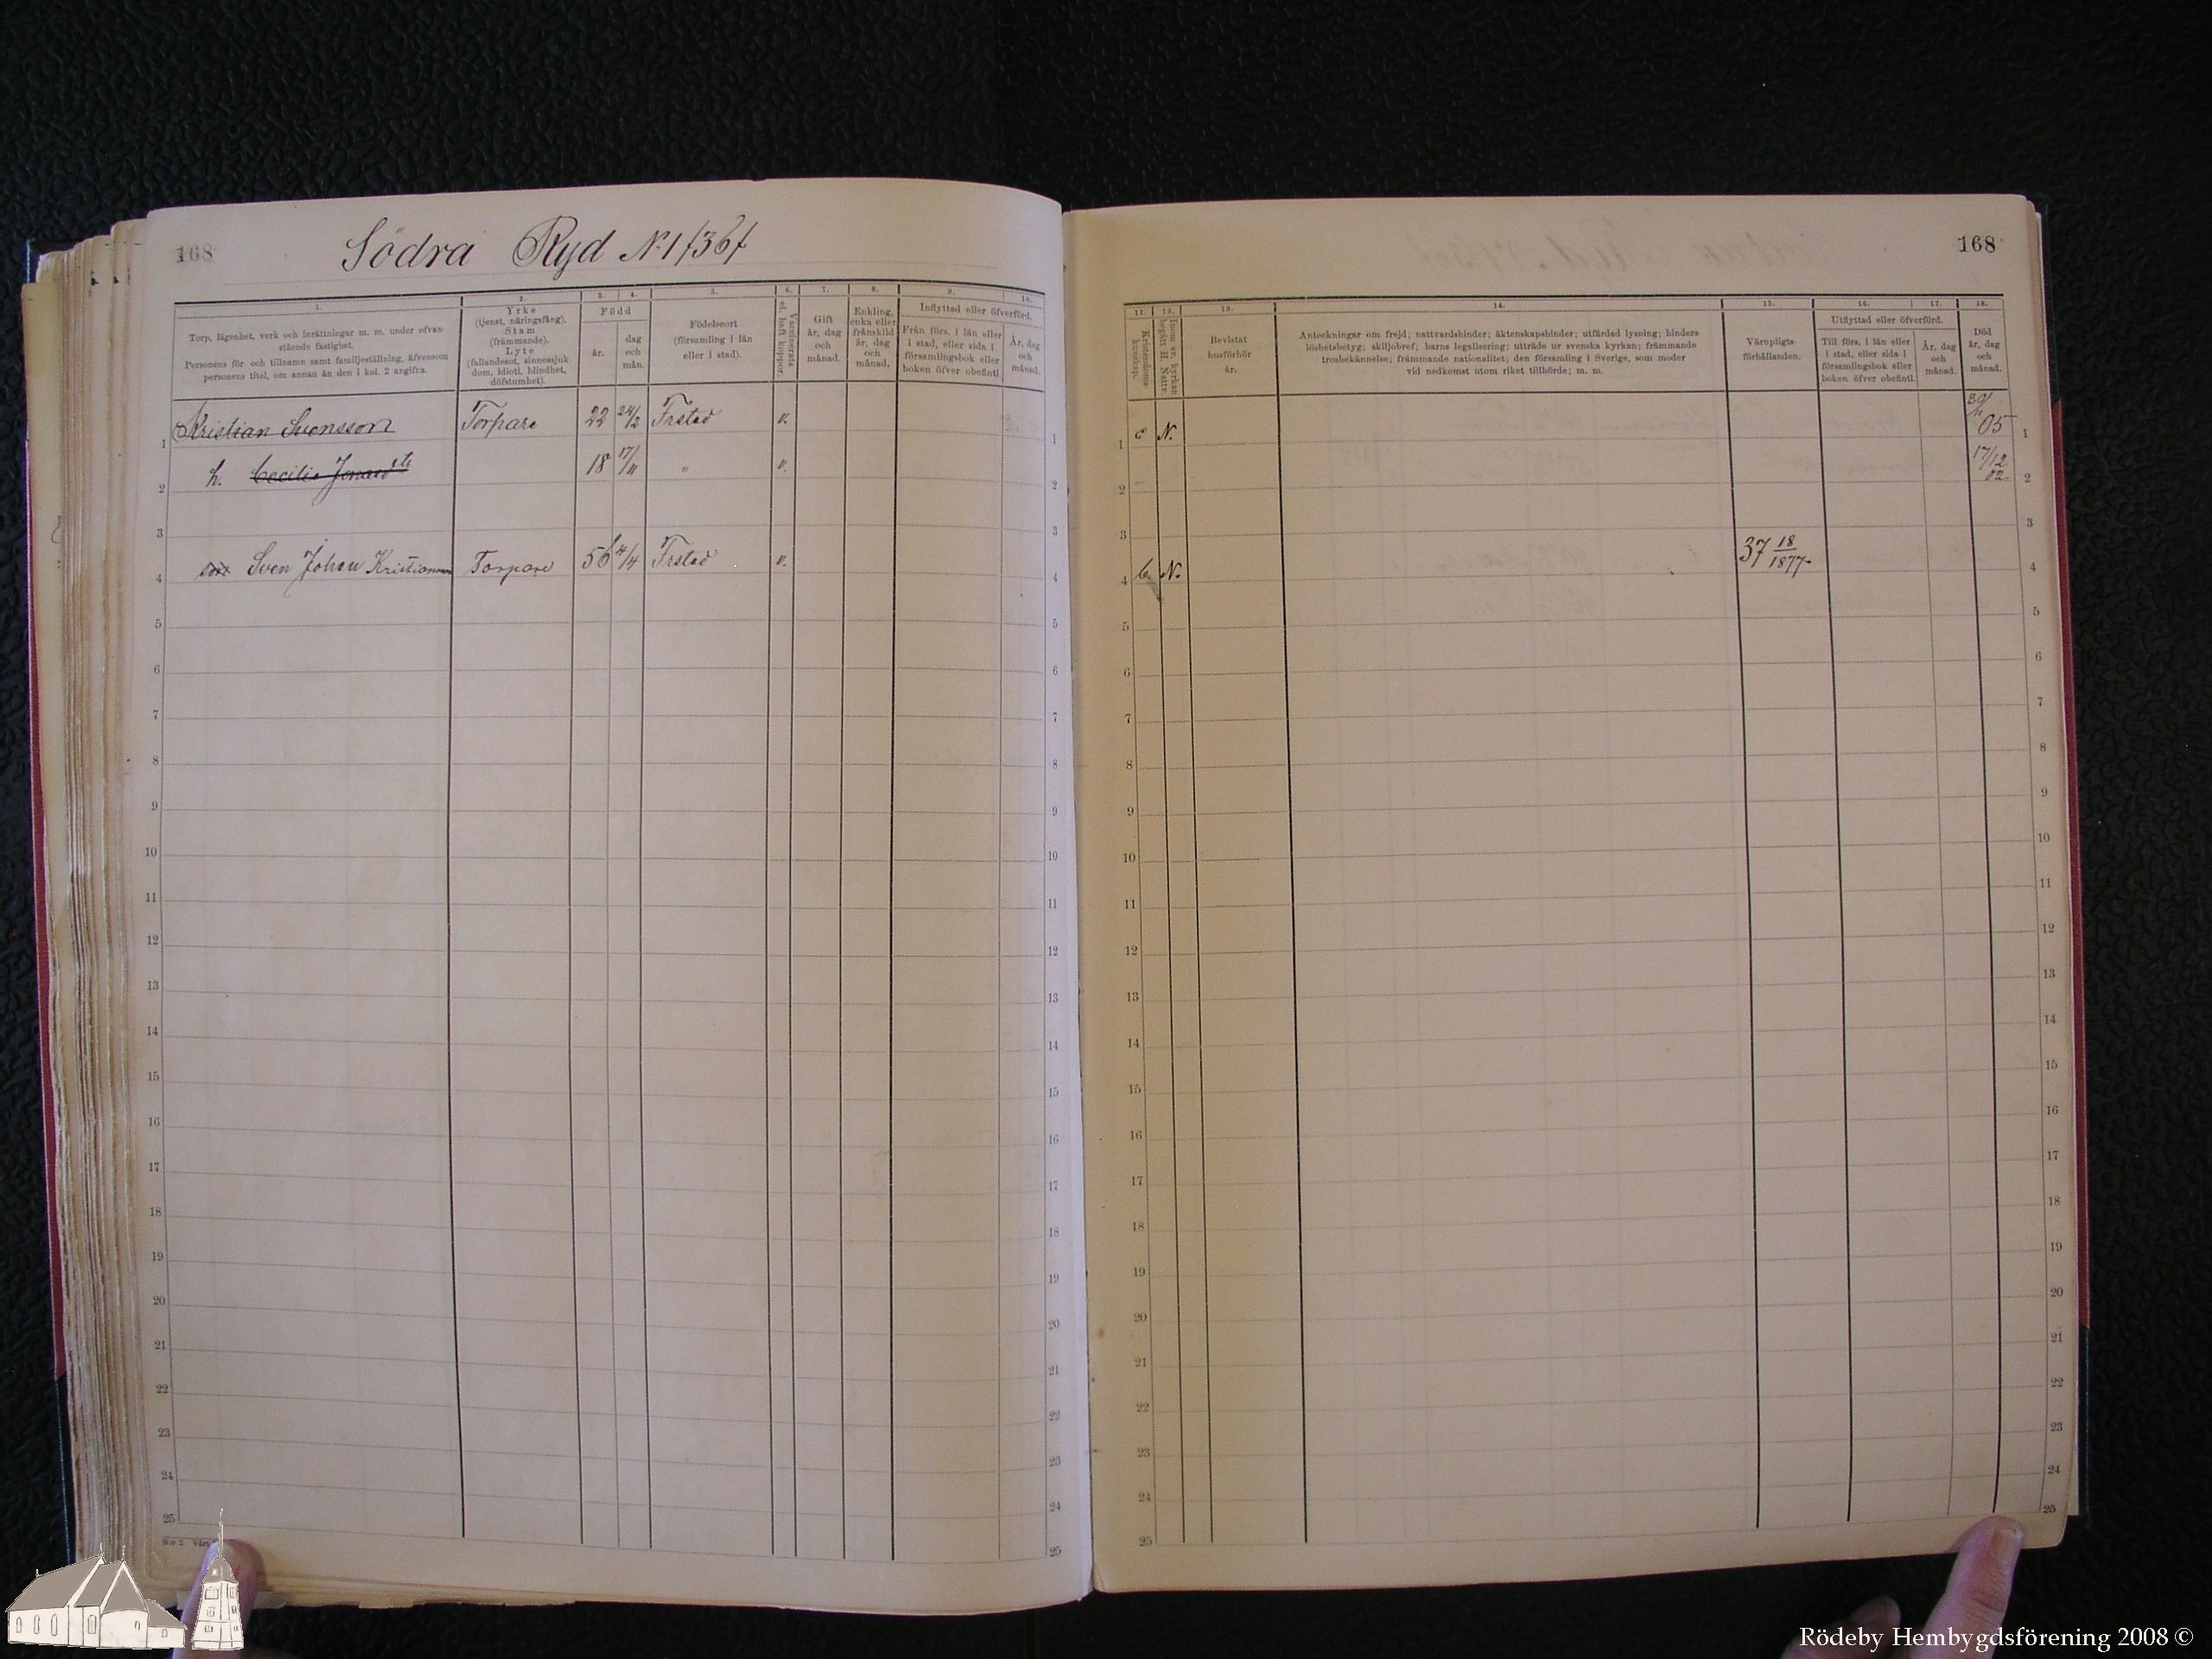 168
Södra Ryd No 1 /36/
1. 2. 3. 4. 5. 6. 7. 8. 9. 10.
Torp, lägenhet, verk och inrättningar m. m. under ofvan-
stående fastighet.
Personens för- och tillnamn samt familjeställning, äfvensom
personens titel, om annan än den i kol. 2 angifna.
Yrke
(tjenst, näringsfång).
Stam
(främmande).
Lyte
(fallandesot, sinnessjuk-
dom, idioti, blindhet,
döfstumhet).
Född
år.
dag
och
mån.
Födelseort
(församling i län
eller i stad).
Vaccinerats
el. haft koppor.
Gift
år, dag
och
månad.
Enkling,
enka eller
frånskild
år, dag
och
månad.
Inflyttad eller öfverförd.
Från förs. i län eller
i stad, eller sida i
församlingsbok eller
boken öfver obefintl.
År, dag
och
månad.
1 Kristian Svensson Torpare 22 24/2 Frstad v. 1
2 h. Cecilia 18 17/11 " v. 2
3 3
4 Sven Johan Kristiansson Torpare 56 4/4 Frstad v. 4
5 5
6 6
7 7
8 8
9 9
10 10
11 11
12 12
13 13
14 14
15 15
16 16
17 17
18 18
19 19
20 20
21 21
22 22
23 23
24 24
25 25
168
11. 12. 13. 14. 15. 16. 17. 18.
Kristendoms-
kunskap.
Inom sv. kyrkan
begått H. Nattv.
Bevistat
husförhör
år.
Anteckningar om frejd; nattvardshinder; äktenskapshinder; utfärdad lysning; hinders-
löshetsbetyg; skiljobref; barns legalisering; utträde ur svenska kyrkan; främmande
trosbekännelse; främmande nationalitet; den församling i Sverige, som moder
vid nedkomst utom riket tillhörde; m. m.
Värnpligts-
förhållanden.
Utflyttad eller öfverförd.
Till förs. i län eller
i stad, eller sida i
församlingsbok eller
boken öfver obefintl.
År, dag
och
månad.
Död
år, dag
och
månad.
1 c N. 30/11 05 1
2 17/12 02 2
3 3
4 N. 37 18/1877 4
5 5
6 6
7 7
8 8
9 9
10 10
11 11
12 12
13 13
14 14
15 15
16 16
17 17
18 18
19 19
20 20
21 21
22 22
23 23
24 24
25 25
Rödeby Hembygdsförening 2008 ©